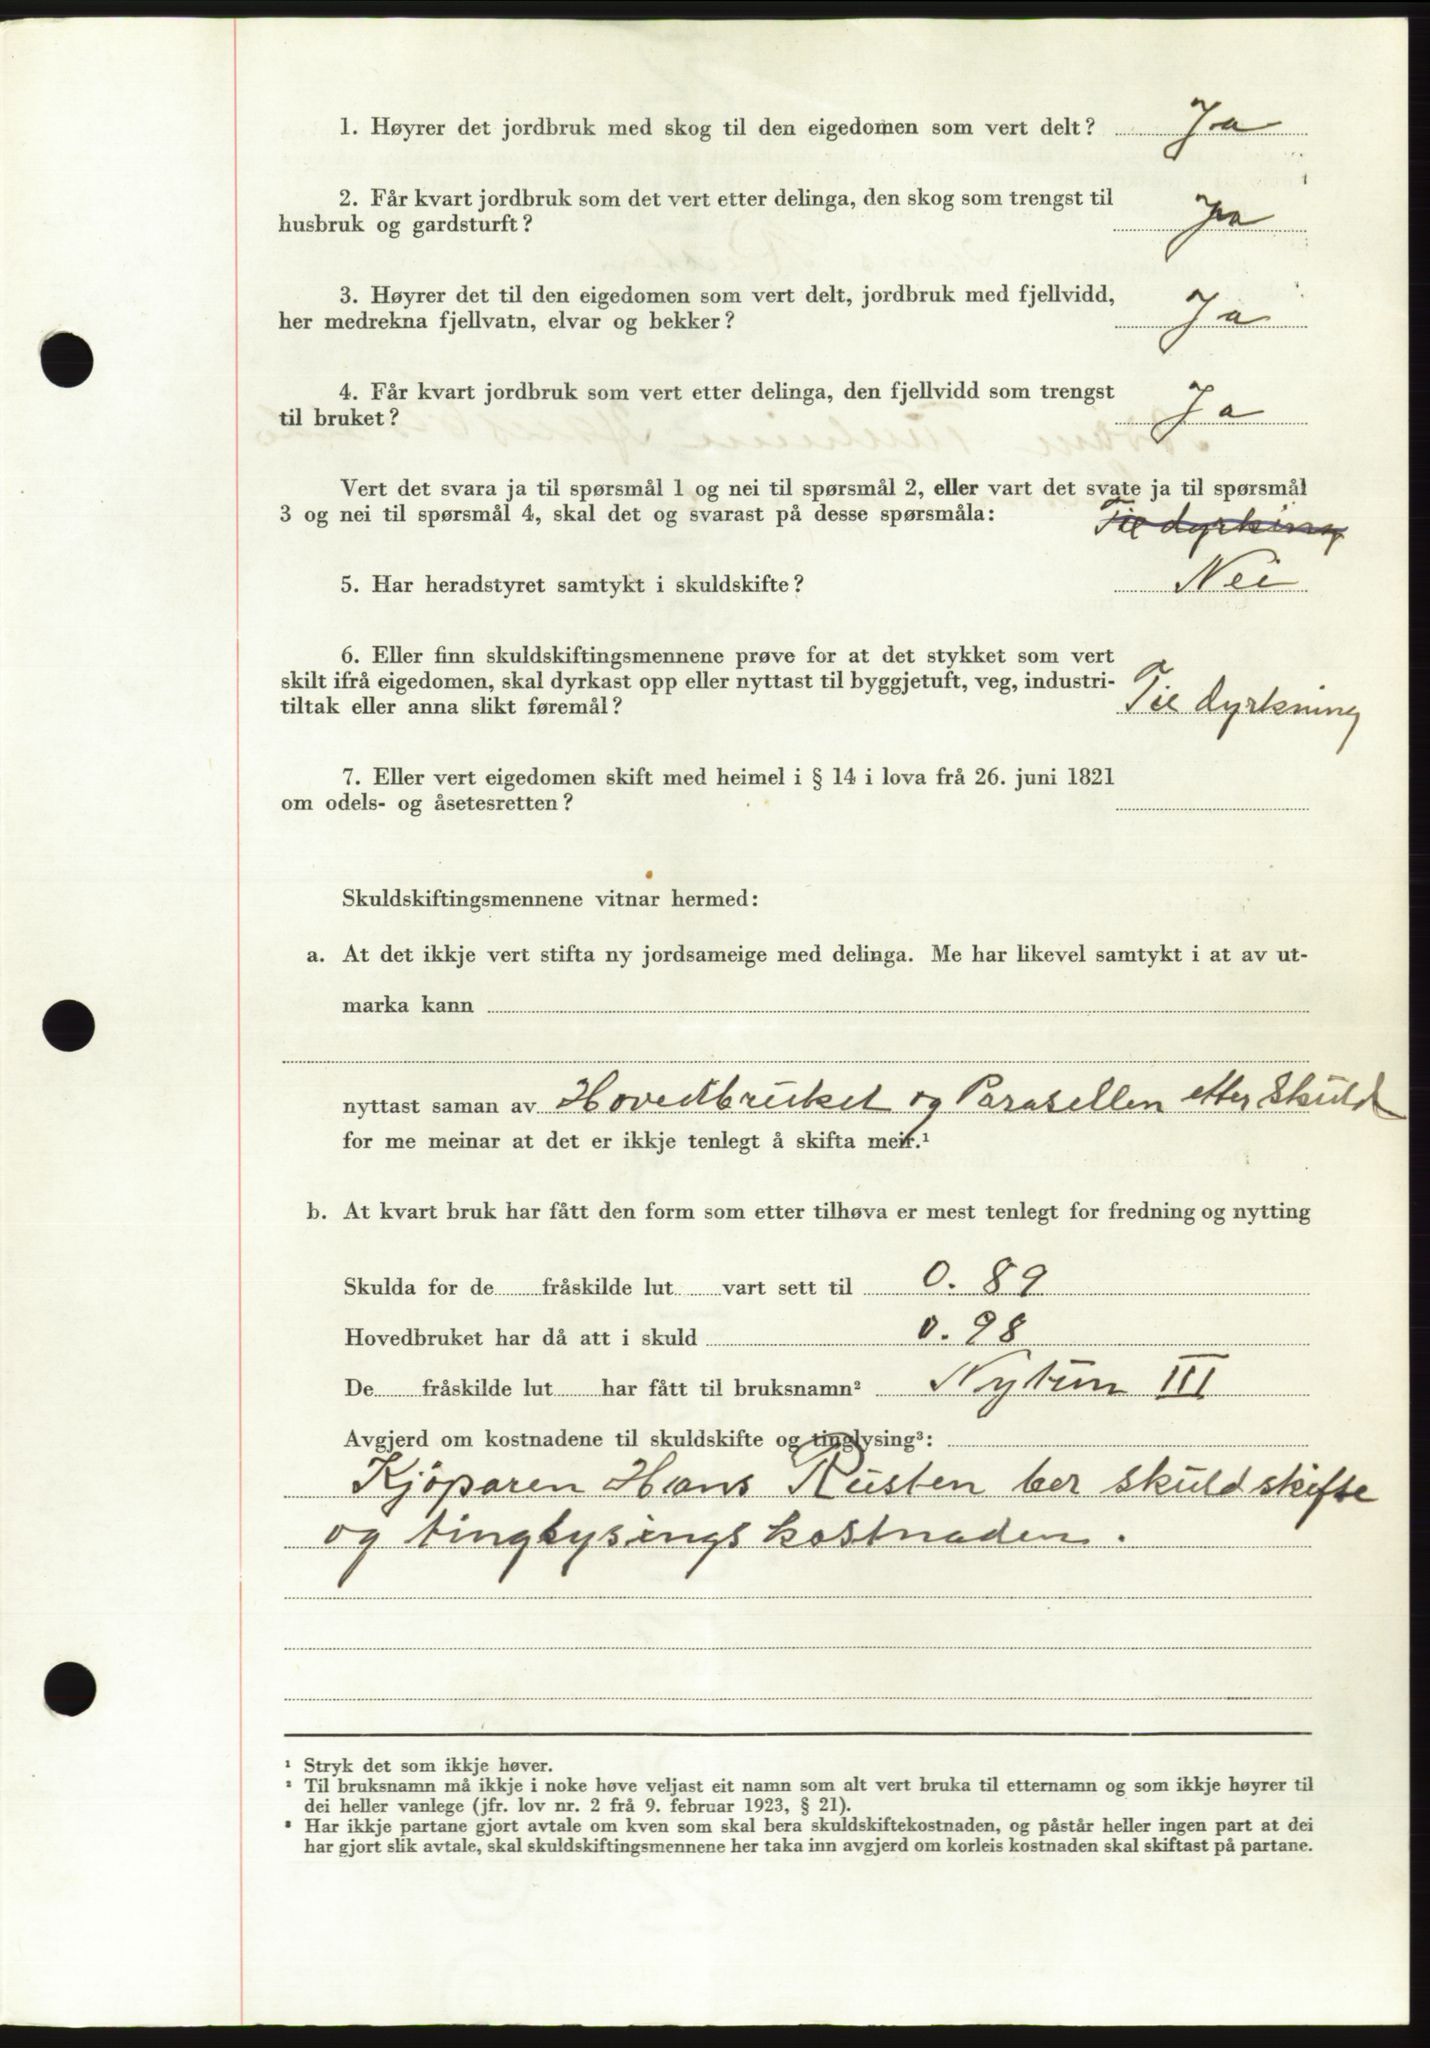 1. Høyrer det jordbruk med skog til den eigedomen som vert delt? Ja
2. Får kvart jordbruk som det vert etter delinga, den skog som trengst til
husbruk og gardsturft? Ja
3. Høyrer det til den eigedomen som vert delt, jordbruk med fjellvidd,
her medrekna fjellvatn, elvar og bekker? Ja
4. Får kvart jordbruk som vert etter delinga, den fjellvidd som trengst
til bruket? Ja
Vert det svara ja til spørsmål 1 og nei til spørsmål 2, eller vart det svate ja til spørsmål
3 og nei til spørsmål 4, skal det og svarast på desse spørsmåla: Til dyrking
5. Har heradstyret samtykt i skuldskifte? Nei
6. Eller finn skuldskiftingsmennene prøve for at det stykket som vert
skilt ifrå eigedomen, skal dyrkast opp eller nyttast til byggjetuft, veg, industri-
tiltak eller anna slikt føremål? Til dyrkning
7. Eller vert eigedomen skift med heimel i § 14 i lova frå 26. juni 1821
om odels- og åsetesretten?
Skuldskiftingsmennene vitnar hermed:
a. At det ikkje vert stifta ny jordsameige med delinga. Me har likevel samtykt i at av ut-
marka kann
nyttast saman av Hovedbruket og Parasellen etter skuld
for me meinar at det er ikkje tenlegt å skifta meir.¹
b. At kvart bruk har fått den form som etter tilhøva er mest tenlegt for fredning og nytting
Skulda for de fråskilde lut vart sett til 0.89
Hovedbruket har då att i skuld 0.98
De fråskilde lut har fått til bruksnamn² Nytun III
Avgjerd om kostnadene til skuldskifte og tinglysing³:
Kjöparen Hans Rusten ber skuldskifte
og tinglysingskostnaden.
¹ Stryk det som ikkje høver.
² Til bruksnamn må ikkje i noke høve veljast eit namn som alt vert bruka til etternamn og som ikkje høyrer til
dei heller vanlege (jfr. lov nr. 2 frå 9. februar 1923, § 21).
³ Har ikkje partane gjort avtale om kven som skal bera skuldskiftekostnaden, og påstår heller ingen part at dei
har gjort slik avtale, skal skuldskiftingsmennene her taka inn avgjerd om korleis kostnaden skal skiftast på partane.